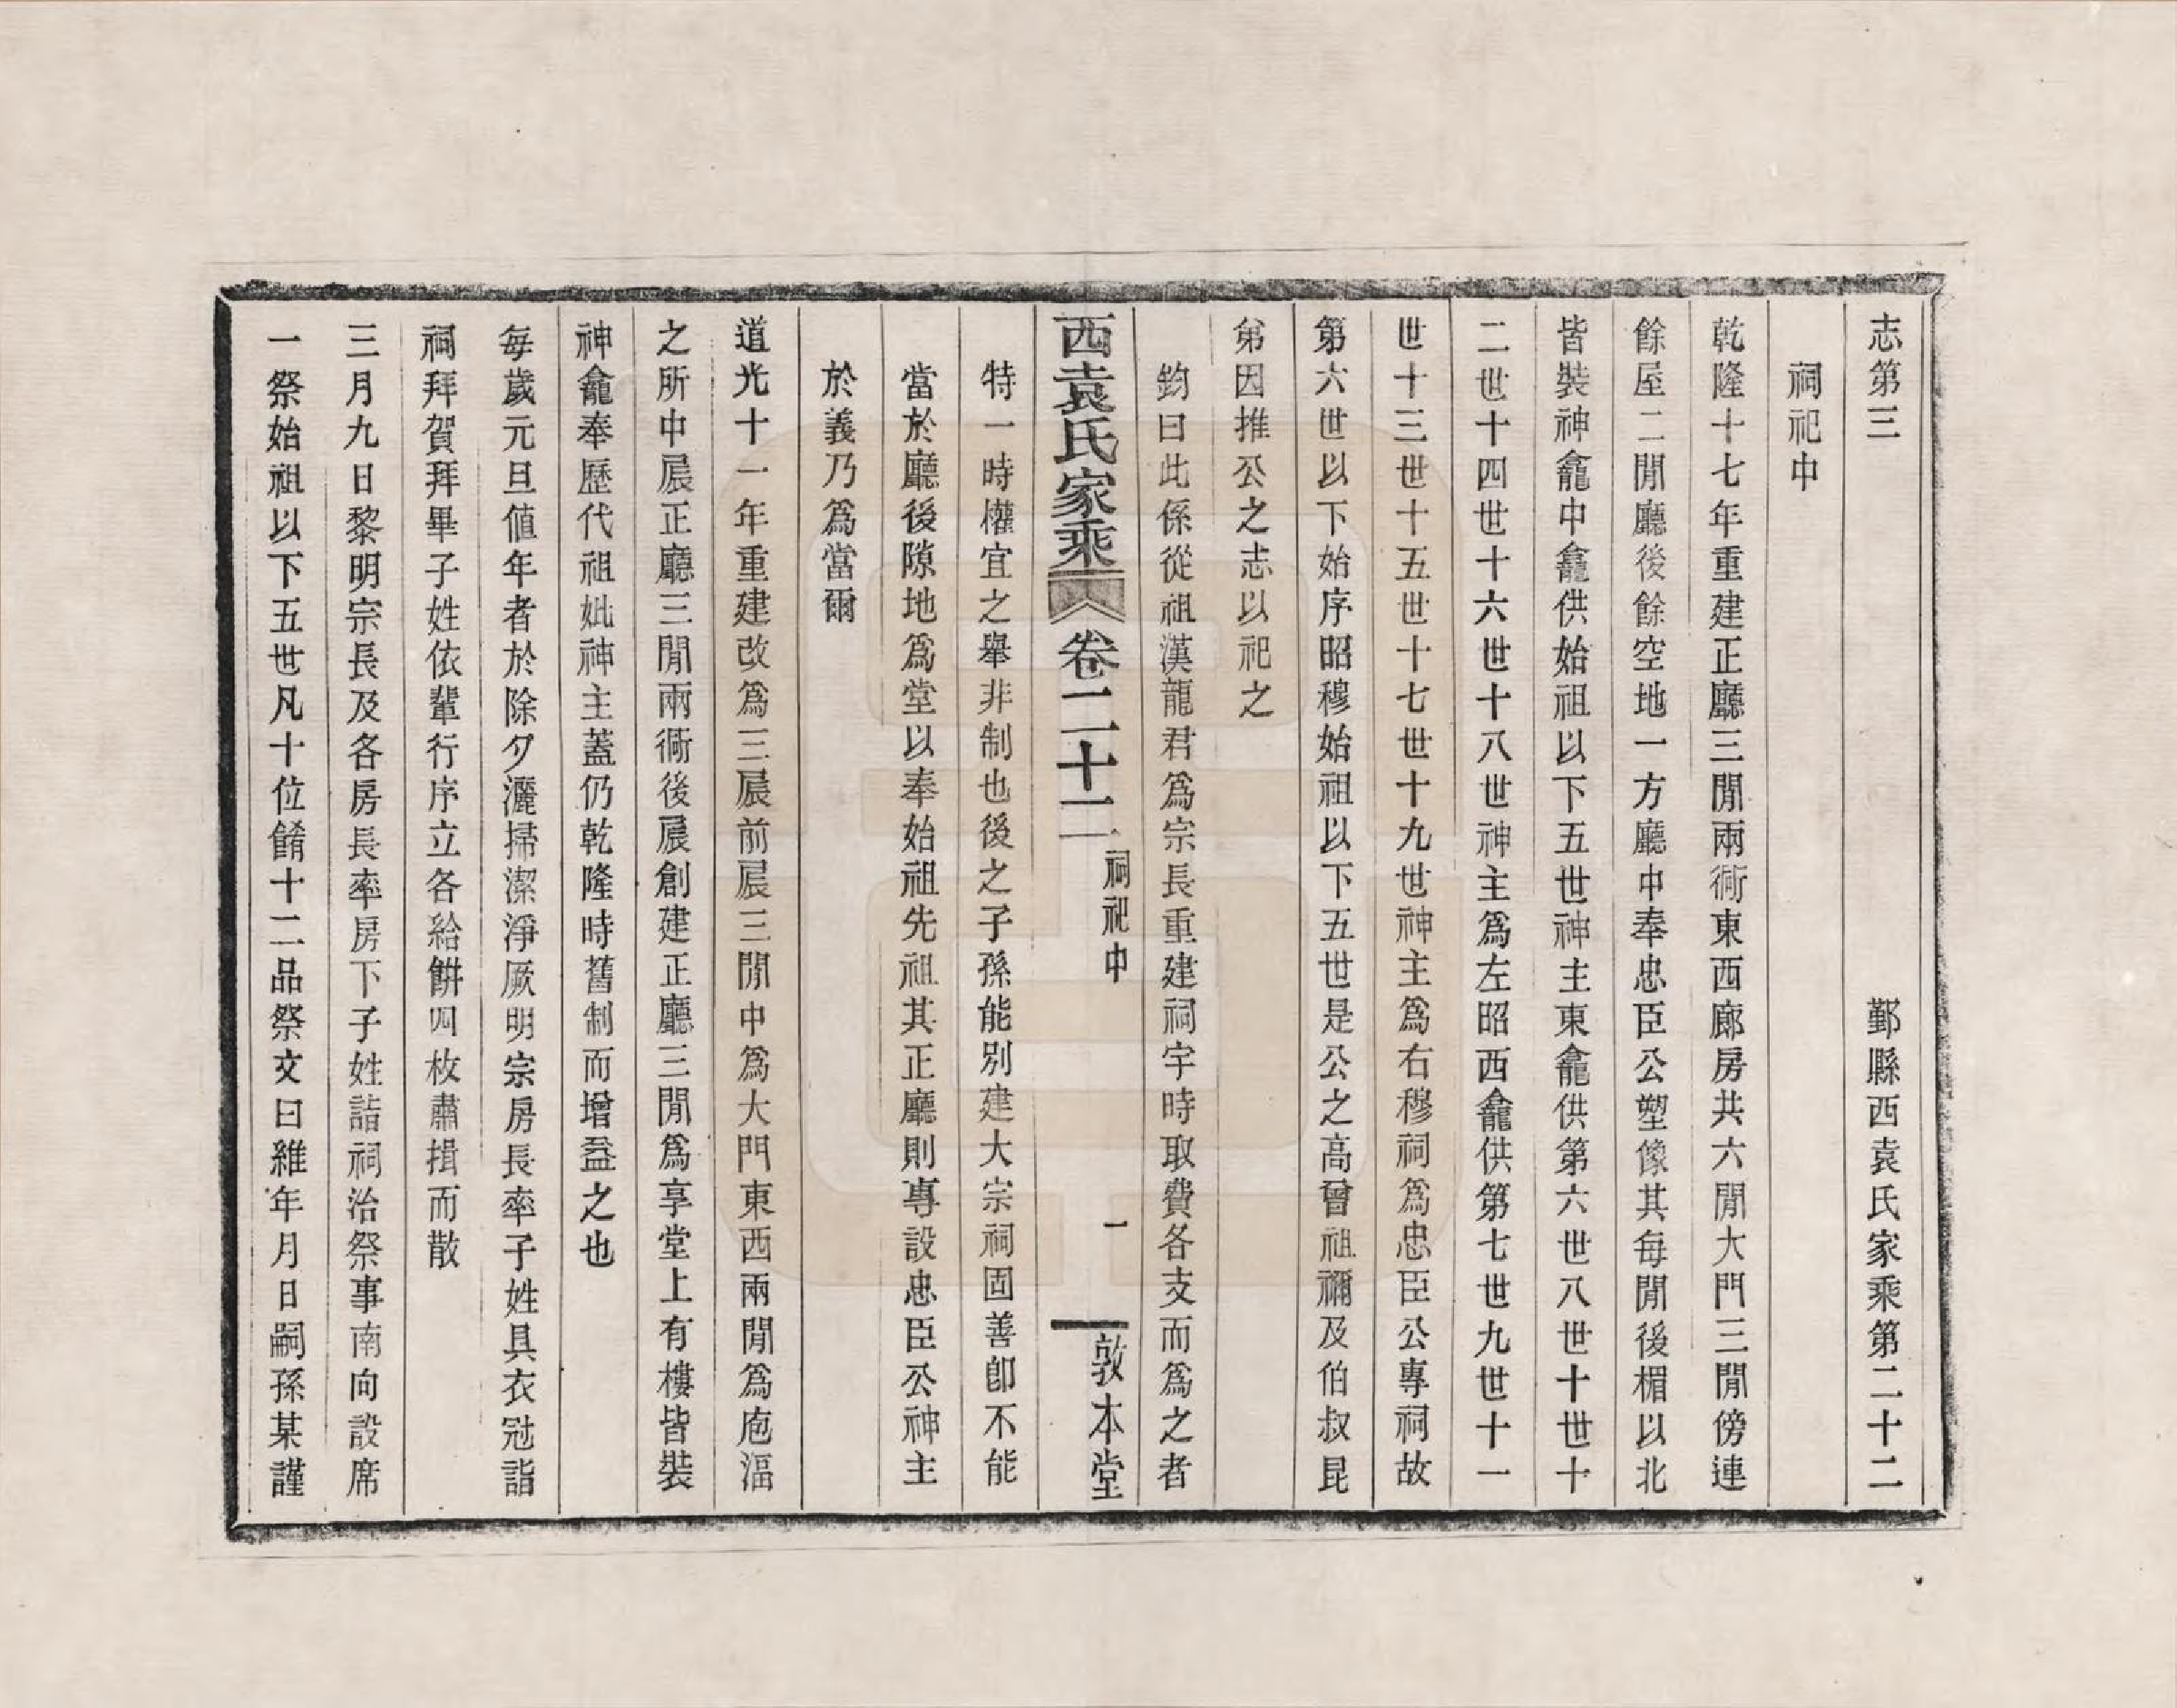 志第三　鄞縣西袁氏家乘第二十二
祠祀中
乾隆十七年重建正廳三閒兩衕東西廊房共六閒大門三閒傍連
餘屋二閒廳後餘空地一方廳中奉忠臣公塑像其每閒後楣以北
皆裝神龕中龕供始祖以下五世神主東龕供第六世八世十世十
二世十四世十六世十八世神主爲左昭西龕供第七世九世十一
世十三世十五世十七世十九世神主爲右穆祠爲忠臣公專祠故
第六世以下始序昭穆始祖以下五世是公之高曾祖禰及伯叔昆
弟因推公之志以祀之
鈞曰此係從祖漢龍君爲宗長重建祠宇時取費各支而爲之者
西袁氏家乘　卷二十二　祠祀中　一　敦本堂
特一時權宜之舉非制也後之子孫能別建大宗祠固善卽不能
當於廳後隙地爲堂以奉始祖先祖其正廳則專設忠臣公神主
於義乃爲當爾
道光十一年重建改爲三㫳前㫳三閒中爲大門東西兩閒爲庖湢
之所中㫳正廳三閒兩衕後㫳創建正廳三閒爲享堂上有樓皆裝
神龕奉歷代祖妣神主蓋仍乾隆時舊制而增益之也
每歲元旦値年者於除夕灑掃潔淨厥明宗房長率子姓具衣冠詣
祠拜賀拜畢子姓依輩行序立各給餅四枚肅揖而散
三月九日黎明宗長及各房長率房下子姓詣祠治祭事南向設席
一祭始祖以下五世凡十位餚十二品祭文曰維年月日嗣孫某謹